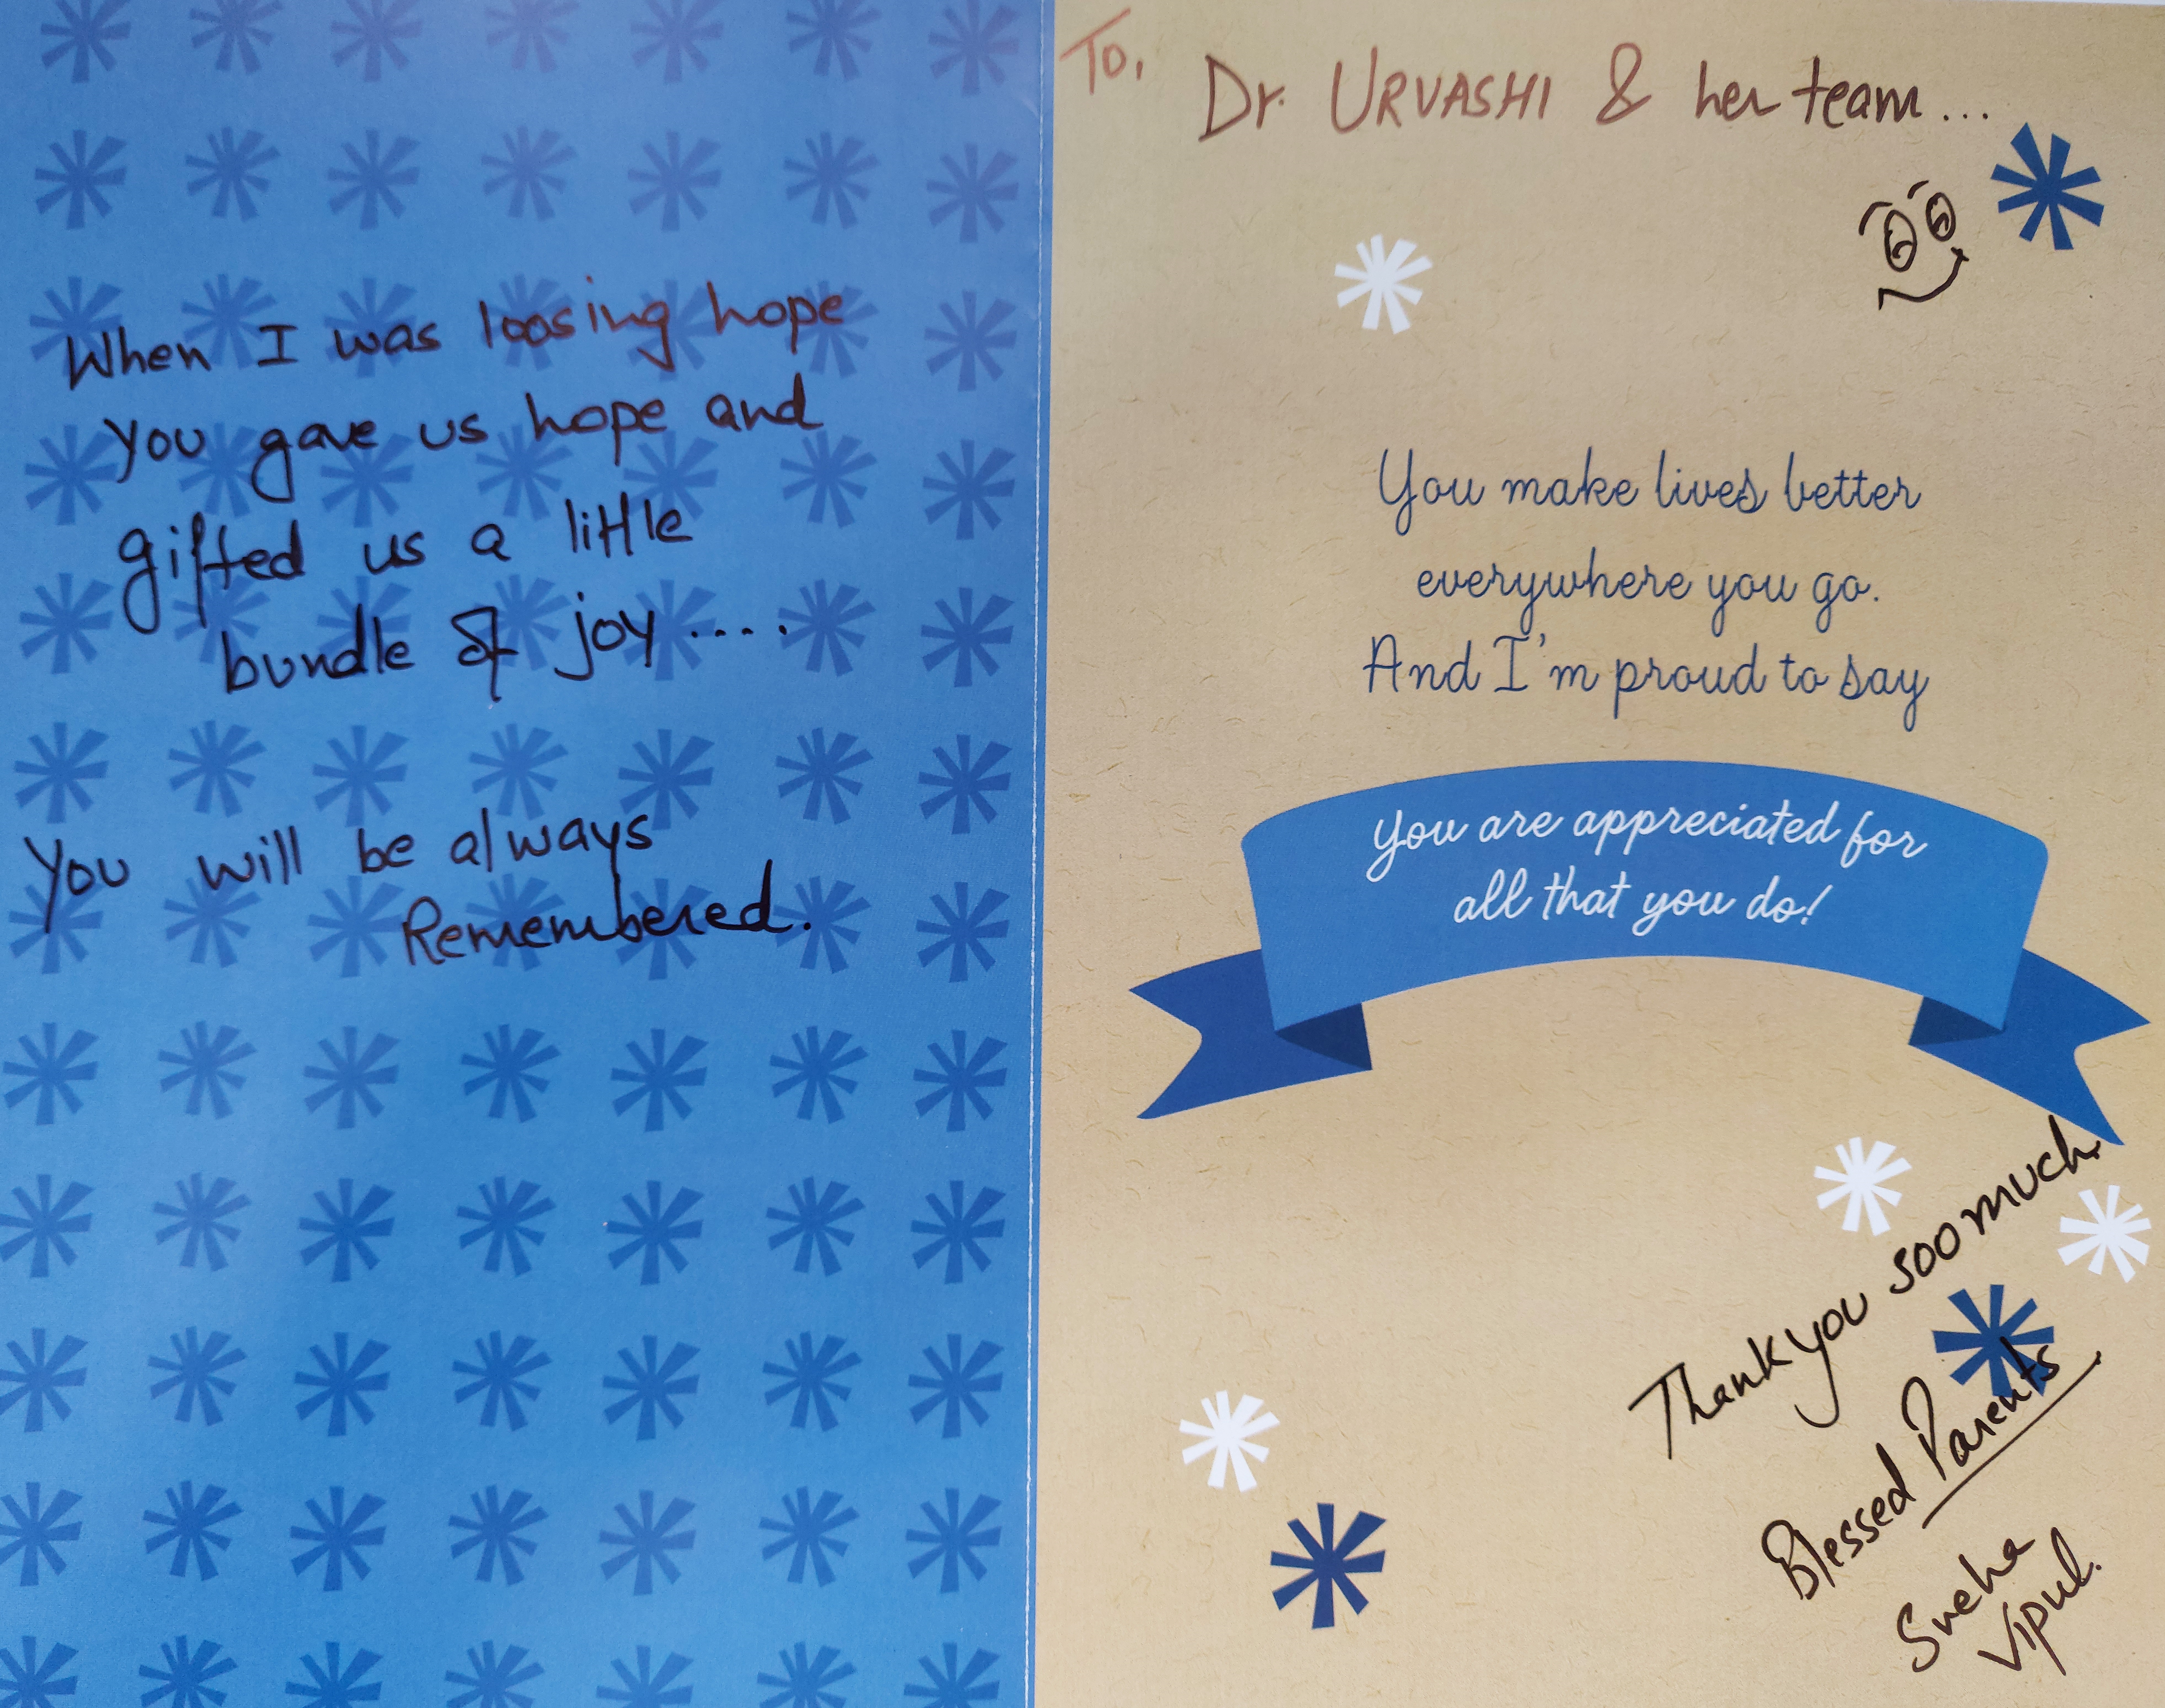 When I was loosing hope
you gave us hope and
gifted us a little
bundle of joy....
You will be always
Remembered.
To,
Dr. URVASHI & her team...
You make lives better
everywhere you go.
And I'm proud to say
You are appreciated for
all that you do!
Thank you soo much.
Blessed Parents
Sneha
Vipul.